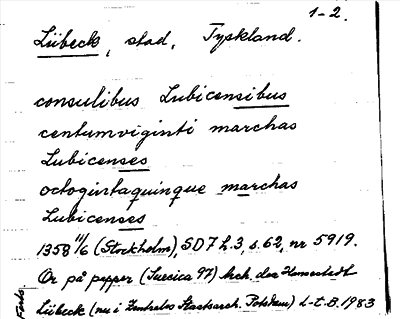 1-2.
Lübeck, stad, Tyskland.
consulibus Lubicensibus
centumviginti marchas
Lubicenses
octogintaquinque marchas
Lubicenses
1358 11/6 (Stockholm), SD 7 h.3, s.62, nr 5919.
Or på papper (Suecica 97) Arch. der Hansestadt
Lübeck (nu i Zentrales Staatsarch. Potsdam) L-t.B. 1983
Forts.